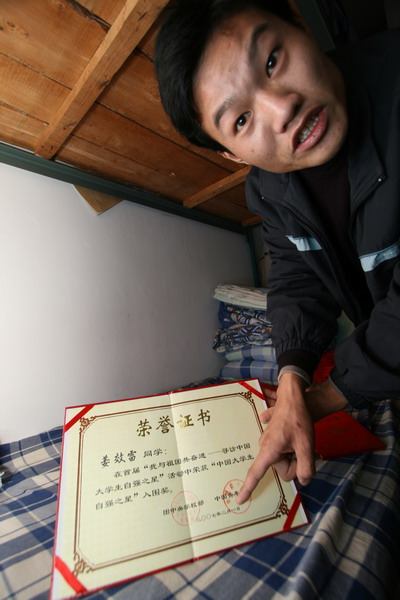 荣誉证书
姜效雷 同学：
在首届“我与祖国共奋进——寻访中国
大学生自强之星”活动中荣获“中国大学生
自强之星”入围奖。
团中央学校部